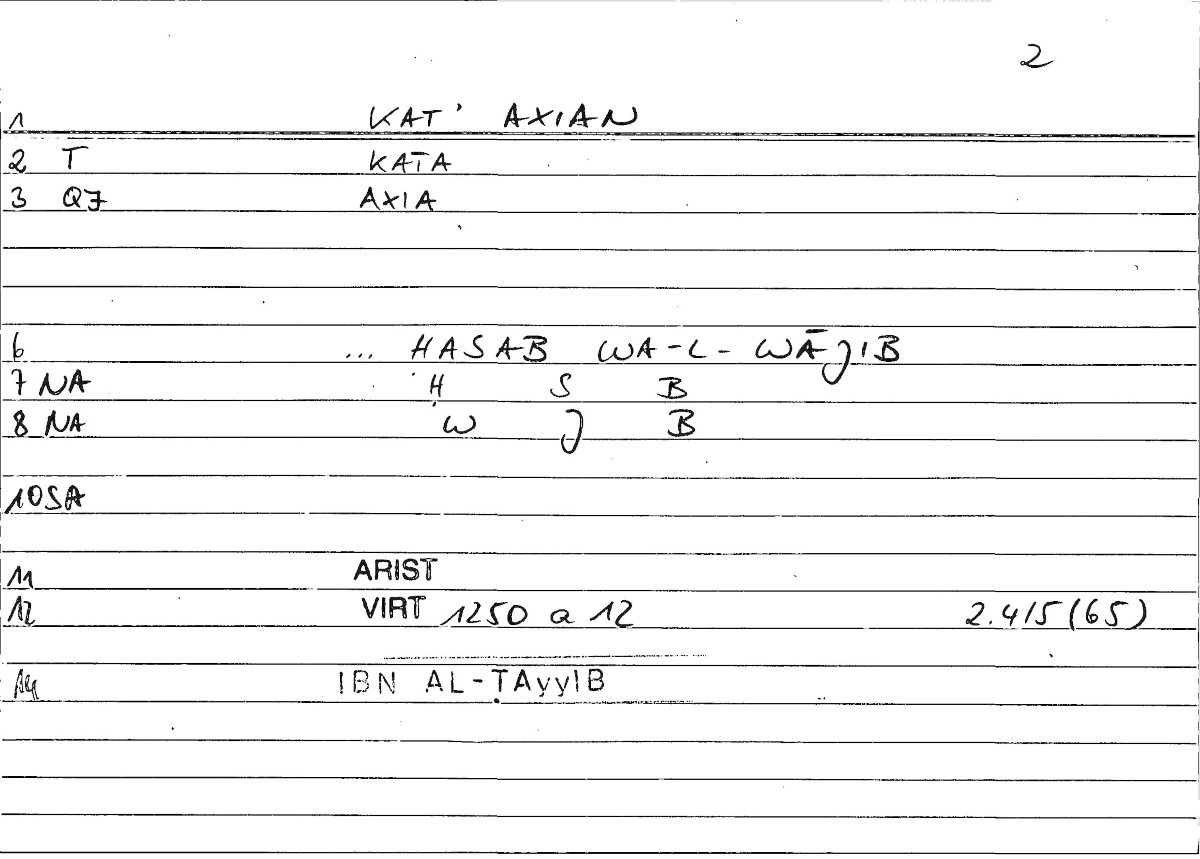 2
1 KAT' AXIAN
2 T KATA
3 QJ AXIA
6 ... ḤASAB WA-L-WĀJIB
7 NA Ḥ S B
8 NA W J B
10 SA
11 ARIST
12 VIRT 1250 a 12 2.4/5 (65)
14 IBN AL-ṬAyyIB